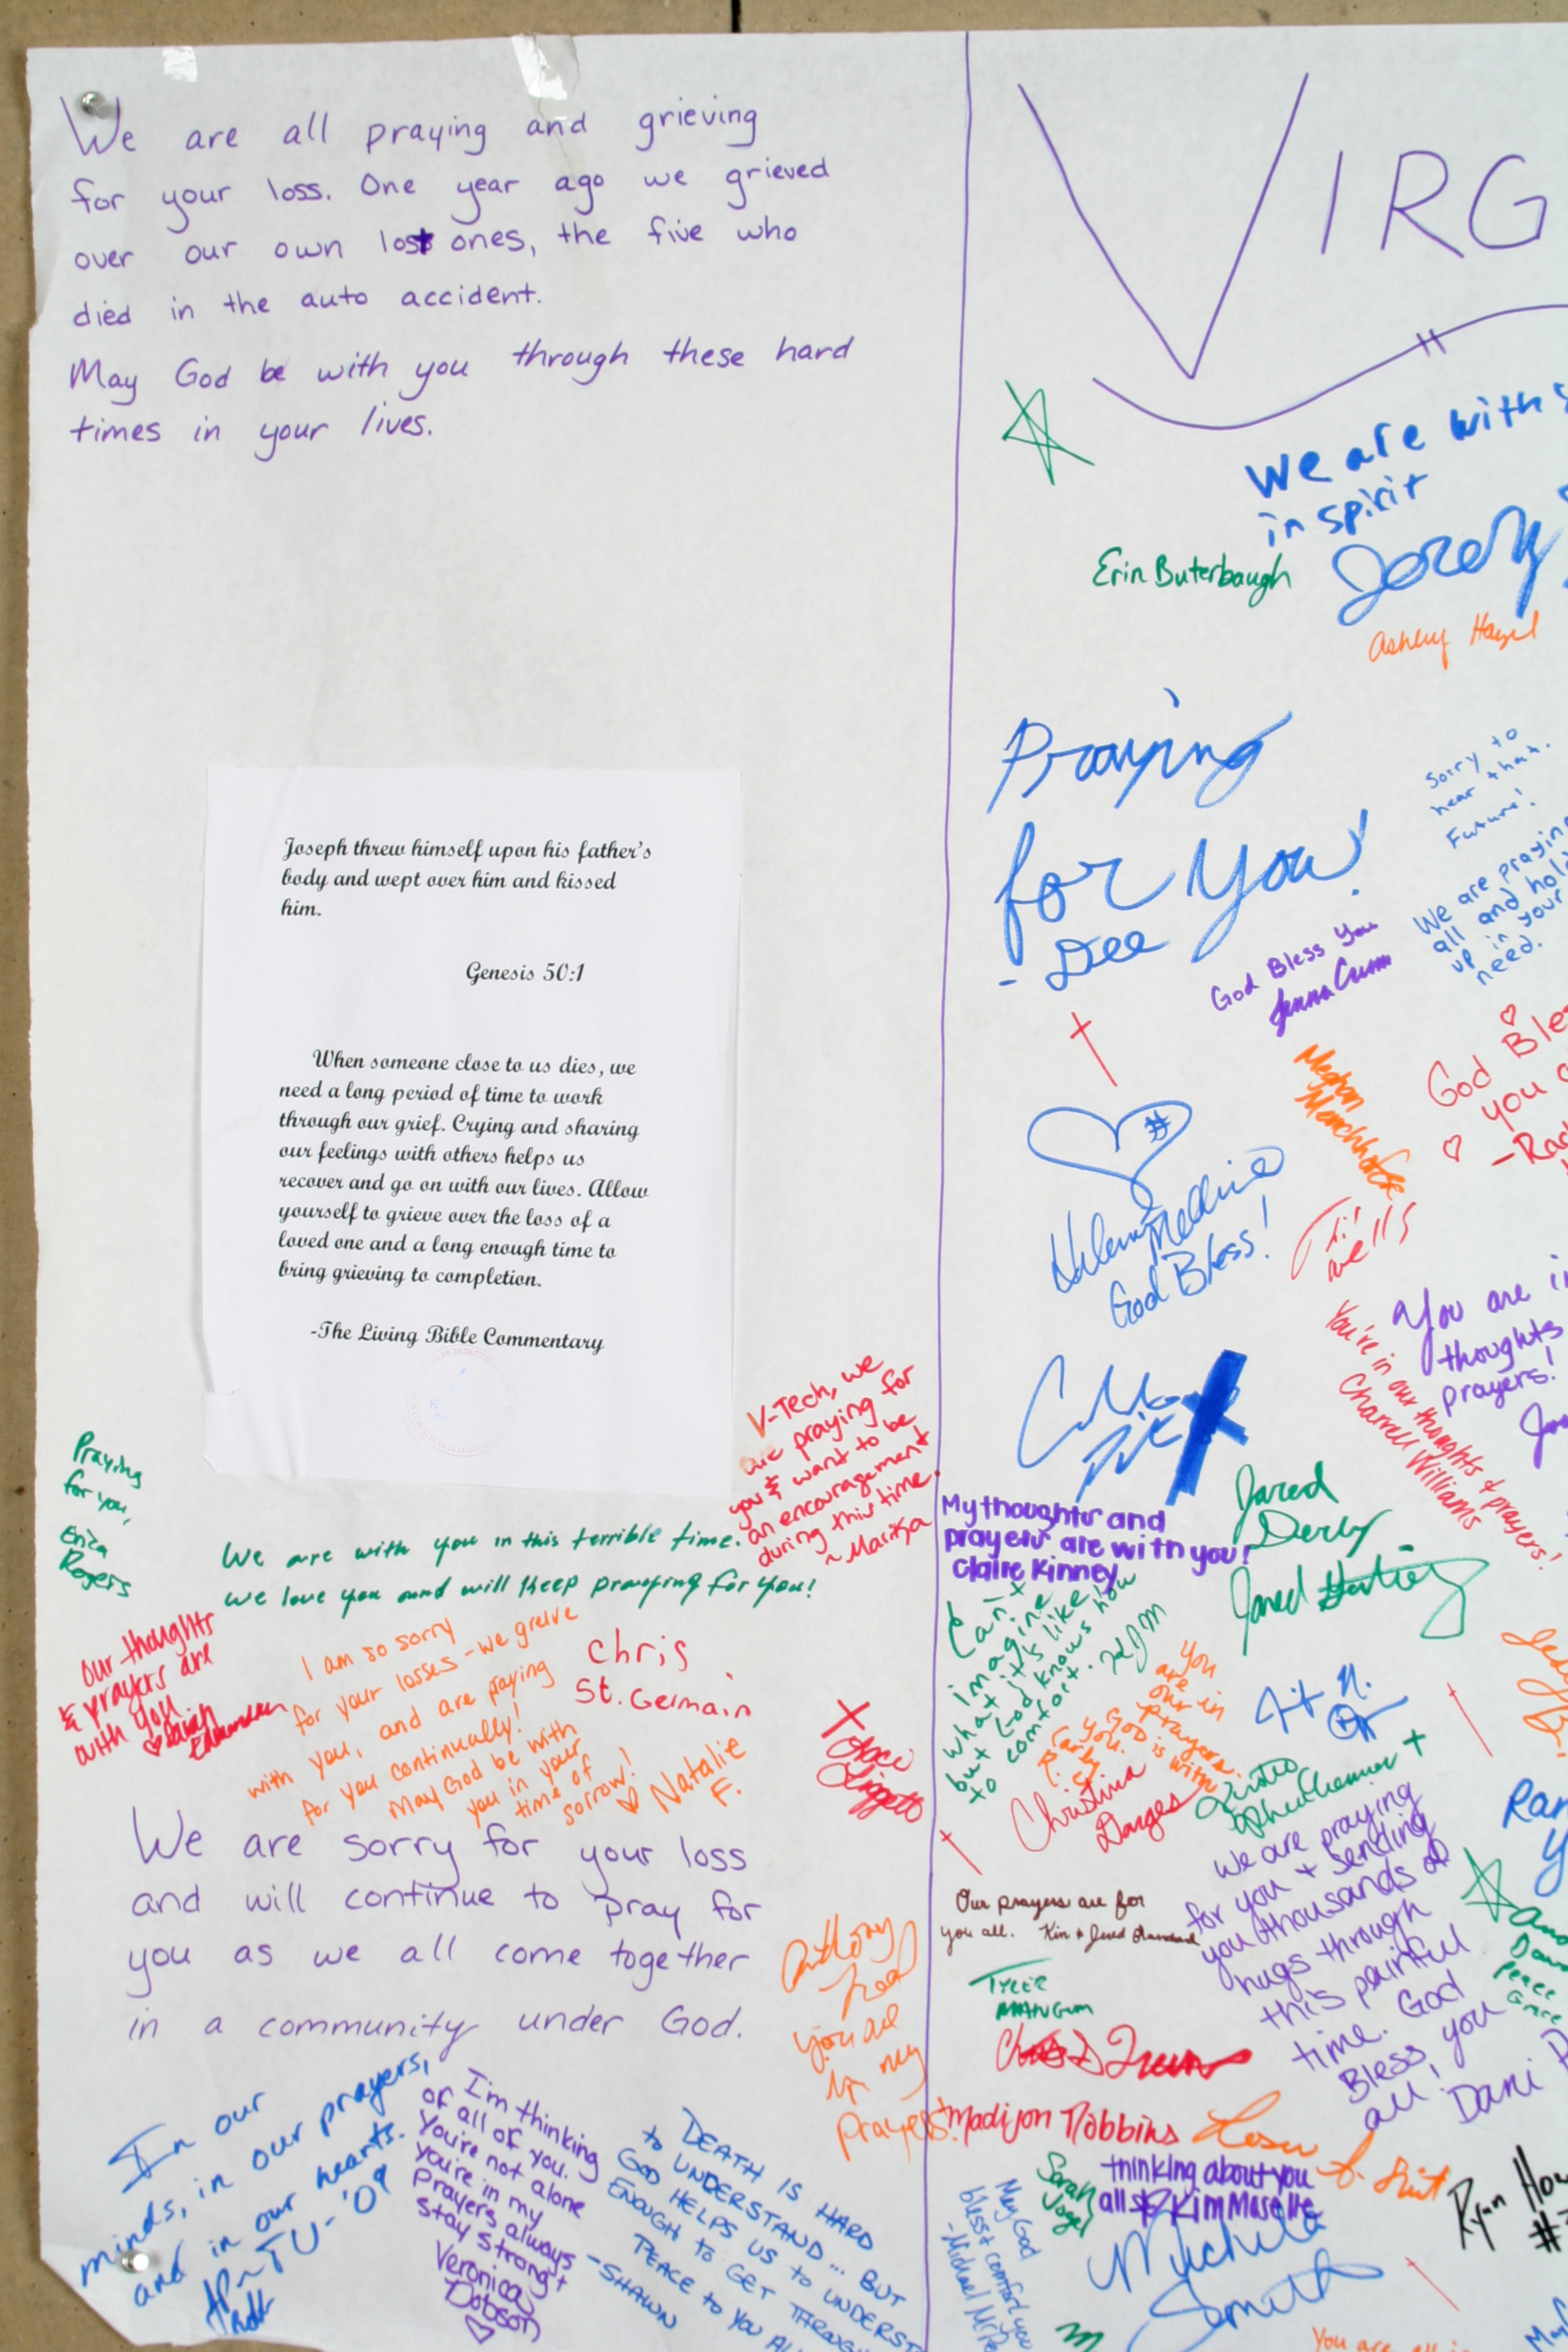 We are all praying and grieving
for your loss. One year ago we grieved
over our own lost ones, the five who
died in the auto accident.
May God be with you through these hard
times in your lives.
Joseph threw himself upon his father's
body and wept over him and kissed
him.
Genesis 50:1
When someone close to us dies, we
need a long period of time to work
through our grief. Crying and sharing
our feelings with others helps us
recover and go on with our lives. Allow
yourself to grieve over the loss of a
loved one and a long enough time to
bring grieving to completion.
-The Living Bible Commentary
V-Tech, we
are praying for
you & want to be
an encouragement
during this time.
~Maritza
Praying
for you,
Erica
Rogers
We are with you in this terrible time.
we love you and will keep praying for you!
our thoughts
& prayers are
with you
I am so sorry
for your losses - we greive
with you, and are praying
for you continually!
May God be with
you in your
time of
sorrow!
Natalie
F.
Chris
St. Germain
We are sorry for your loss
and will continue to pray for
you as we all come together
in a community under God.
Anthony
you are
in my
prayers!
In our
minds, in our prayers,
and in our hearts.
TU-'09
I'm thinking
of all of you.
You're not alone
you're in my
Prayers always
Stay Strong
Veronica
Dobson
DEATH IS HARD
to UNDERSTAND... BUT
GOD HELPS US to UNDERST
ENOUGH to GET THROUGH
PEACE to YOU AL
-SHAWN
VIRG
We are with
in spirit
Jeremy
Erin Buterbaugh
Ashley
Praying
for you!
- Dee
Sorry to
hear that.
Future!
We are praying
all and hol
up in your
need.
God Bless You
Jenna
God Ble
you
-Rac
Meghan
#
Medina
God Bless!
You are i
thoughts
prayers!
You're in our thoughts & prayers!
Charrell Williams
My thoughts and
prayers are with you!
Claire Kinney
Jared
Derby
Jared
I can't
imagine
what it's like,
but God knows how
to comfort.
You
are in
our
prayers.
God is with
you.
Carly
R.
Christina
Danges
we are praying
for you & sending
you thousands of
hugs through
this painful
time. God
Bless you
all,
Dani
Our prayers are for
you all.
Tyler
Mangum
Madison Robbins
Sarah
Vogel
thinking about you
all
Kim
May God
bless & comfort you
-Michael
Michela
Smith
Ryan
#
Peace
Grace
You are all i